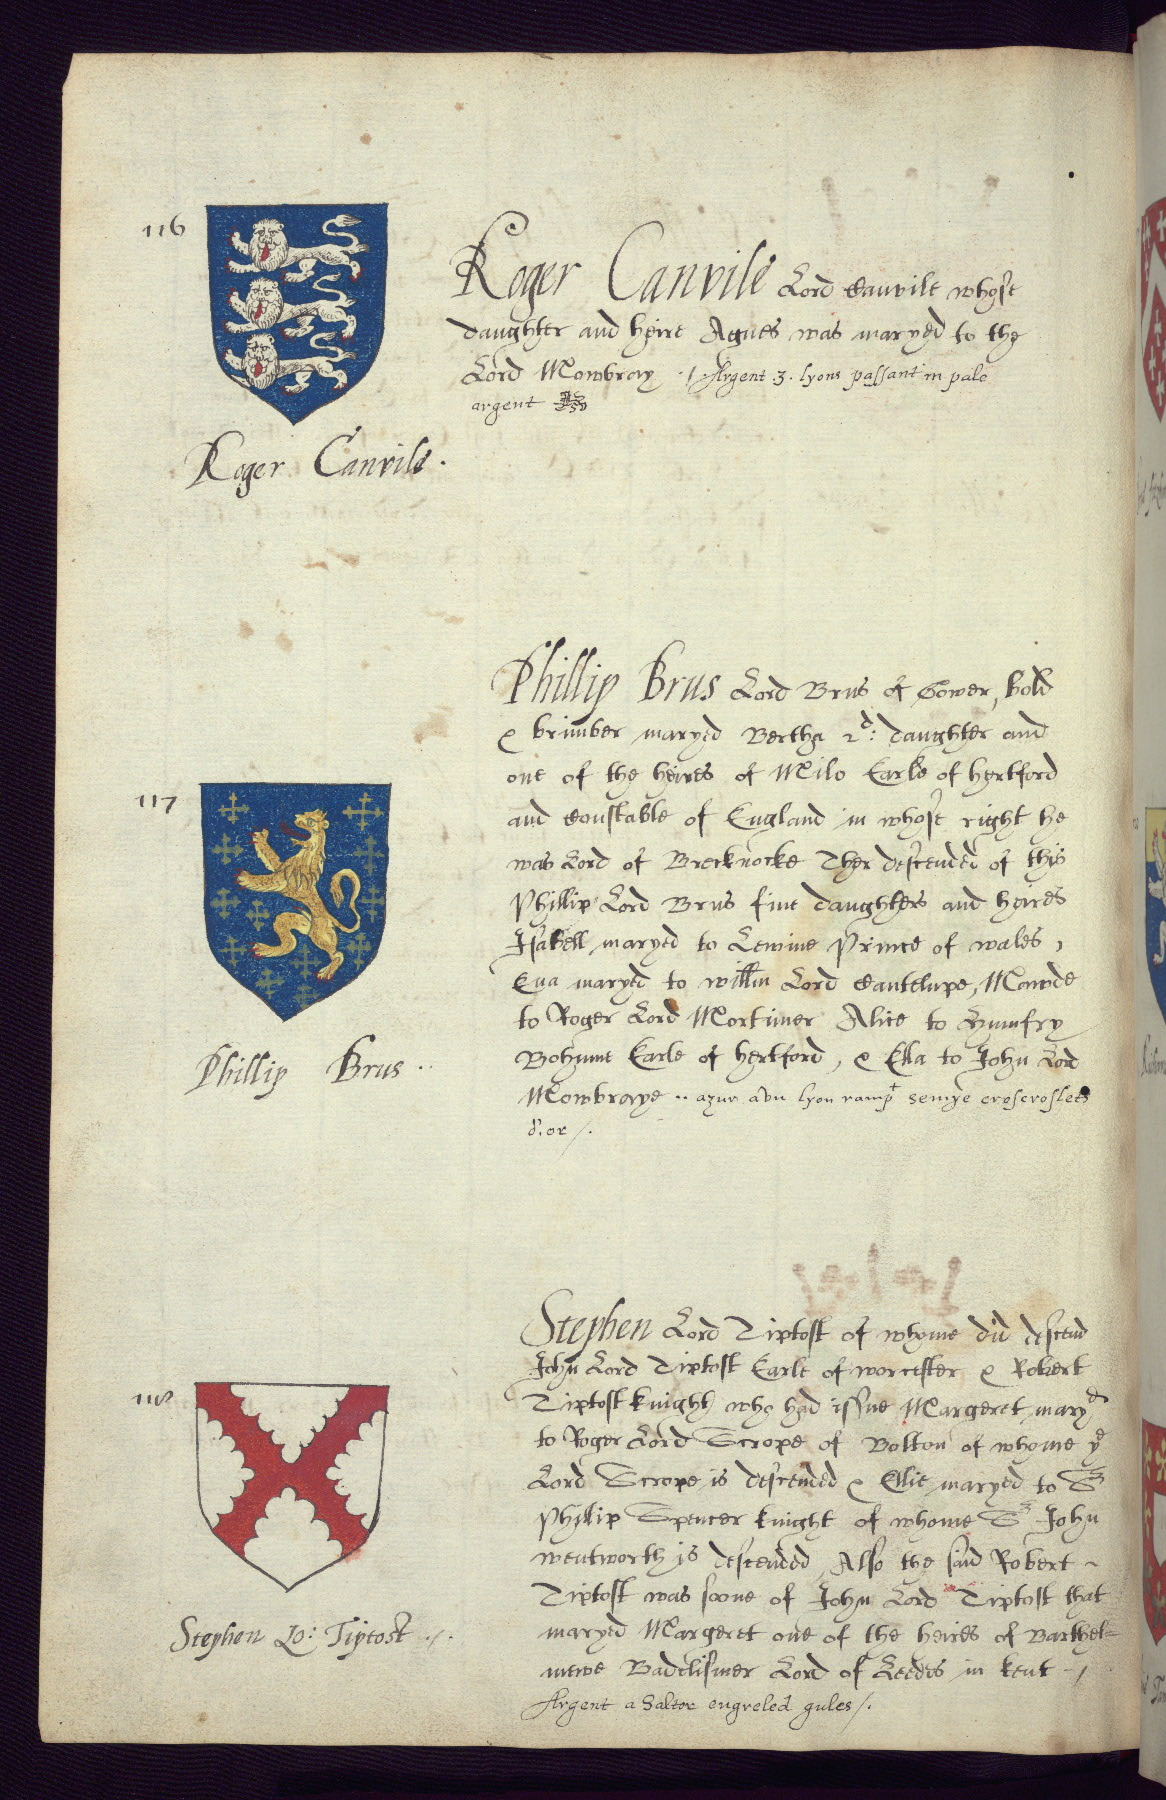 116
Roger Canvile Lord Canvile whose
daughter and heire Agnes was maryed to the
Lord Mowbray ·/ Argent ·3· lyons passant in pale
argent
Roger Canvile ·
Phillip Brus Lord Brus of Gower, bold
& brimber maryed Bertha 2d: daughter and
one of the heires of Milo Earle of hertford
117
and Constable of England in whose right he
was Lord of Brecknocke Ther descended of this
Phillip Lord Brus five daughters and heires
Isabell maryed to Lewine Prince of wales,
Eva maryed to willm Lord Cantelupe, Mawde
to Roger Lord Mortimer Alice to Humfry
Bohune Earle of hertford, & Ella to John Lord
Mowbraye ·· azur a vn lyon rampt semye croscroslets
d'or /.
Phillip Brus ··
Stephen Lord Tiptost of whome did descend
John Lord Tiptost Earle of worcester & Robert
118
Tiptost knight who had issue Margeret maryd
to Roger Lord Scrope of Bolton of whome ye
Lord Scrope is descended & Ellie maryed to Sr
Phillip Spencer knight of whome Sr John
wentworth is descended, Also the said Robert ~
Tiptost was soone of John Lord Tiptost that
maryed Margeret one of the heires of Barthel=
mewe Badelismer Lord of Leedes in kent ·/
Argent a Saltor engreled gules /.
Stephen Lo: Tiptost ·/·